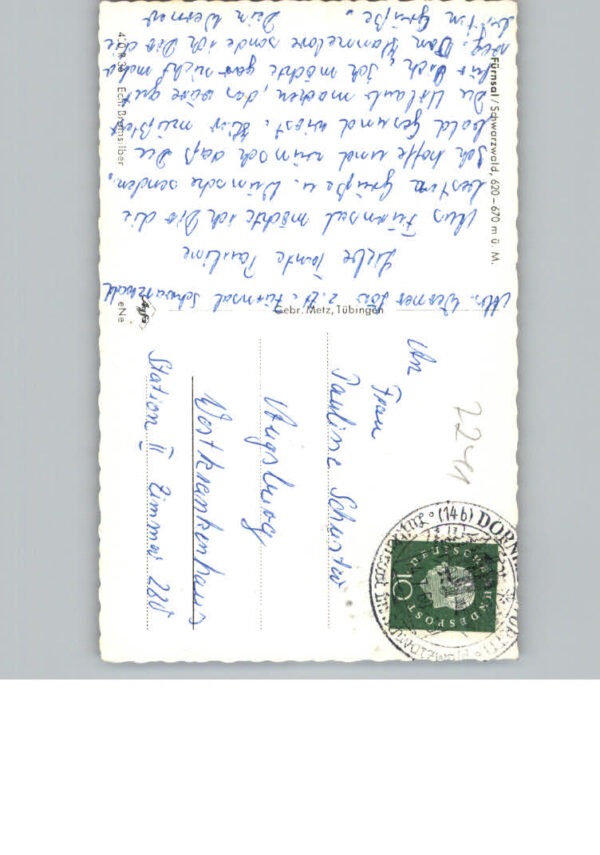 Fürnsal / Schwarzwald, 620–670 m ü. M.
Abs. Werner z. Zt. Fürnsal Schwarzwald
Liebe Tante Pauline
Aus Fürnsal möchte ich Dir die
besten Grüße u. Wünsche senden.
Ich hoffe und wünsch daß Du
bald gesund wirst. Hier müßtest
Du Urlaub machen, das wäre gut
für Dich, ich möchte gar nicht mehr
weg. Von Hannelore sende ich Dir die
besten Grüße.
Dein Werner
Echt Bromsilber
Agfa
eNe
Gebr. Metz, Tübingen
2241
An
Frau
Pauline Schuster
Augsburg
Westkrankenhaus
Station II Zimmer 280
(14b) DORN
DEUTSCHE
BUNDESPOST
10